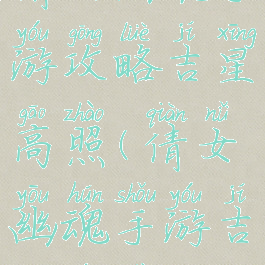 yóu gōng lüè jí xīng
游攻略吉星
gāo zhào qiàn nǚ
高照(倩女
yōu hún shǒu yóu jí
幽魂手游吉